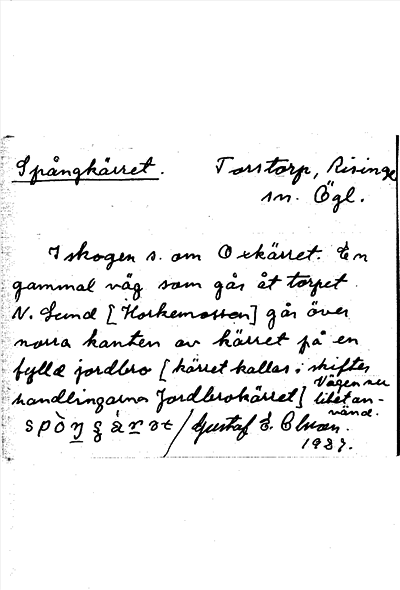 Spångkärret. Torstorp, Risinge
sn. Ögl.
I skogen s. om Oxkärret. En
gammal väg som går åt torpet
N. Lund [Horkemossen] går över
norra kanten av kärret på en
fylld jordbro [kärret kallas i skiftes
handlingarna Jordbrokärret] Vägen nu
litet an-
vänd.
Gustaf E. Olson.
1937.